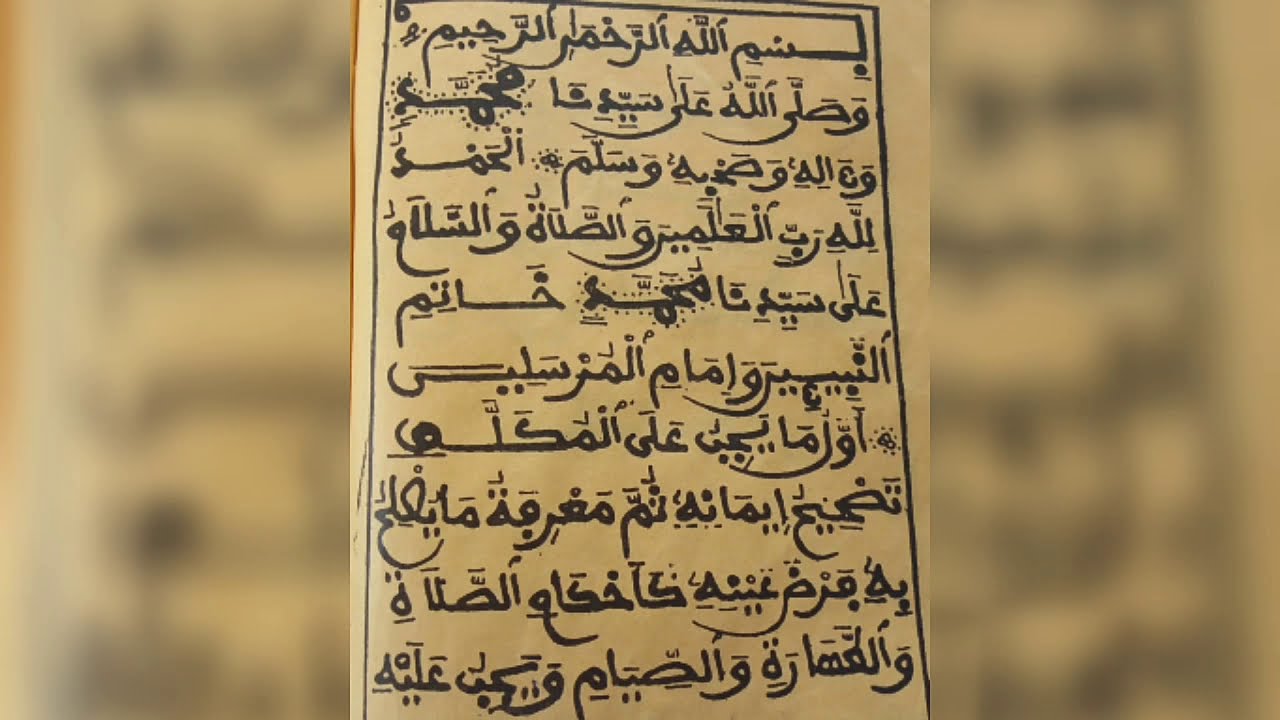 بِسْمِ اللَّهِ الرَّحْمَٰنِ الرَّحِيمِ
وَصَلَّى اللَّهُ عَلَىٰ سَيِّدِنَا مُحَمَّدٍ
وَءَالِهِ وَصَحْبِهِ وَسَلَّمَ الْحَمْدُ
لِلَّهِ رَبِّ الْعَالَمِينَ وَالصَّلَاةُ وَالسَّلَامُ
عَلَىٰ سَيِّدِنَا مُحَمَّدٍ خَاتِمِ
النَّبِيِّينَ وَإِمَامِ الْمُرْسَلِينَ
أَوَّلُ مَا يَجِبُ عَلَى الْمُكَلَّفِ
تَصْحِيحُ إِيمَانِهِ ثُمَّ مَعْرِفَةُ مَا يُصْلِحُ
بِهِ فَرْضَ عَيْنِهِ كَأَحْكَامِ الصَّلَاةِ
وَالطَّهَارَةِ وَالصِّيَامِ وَيَجِبُ عَلَيْهِ